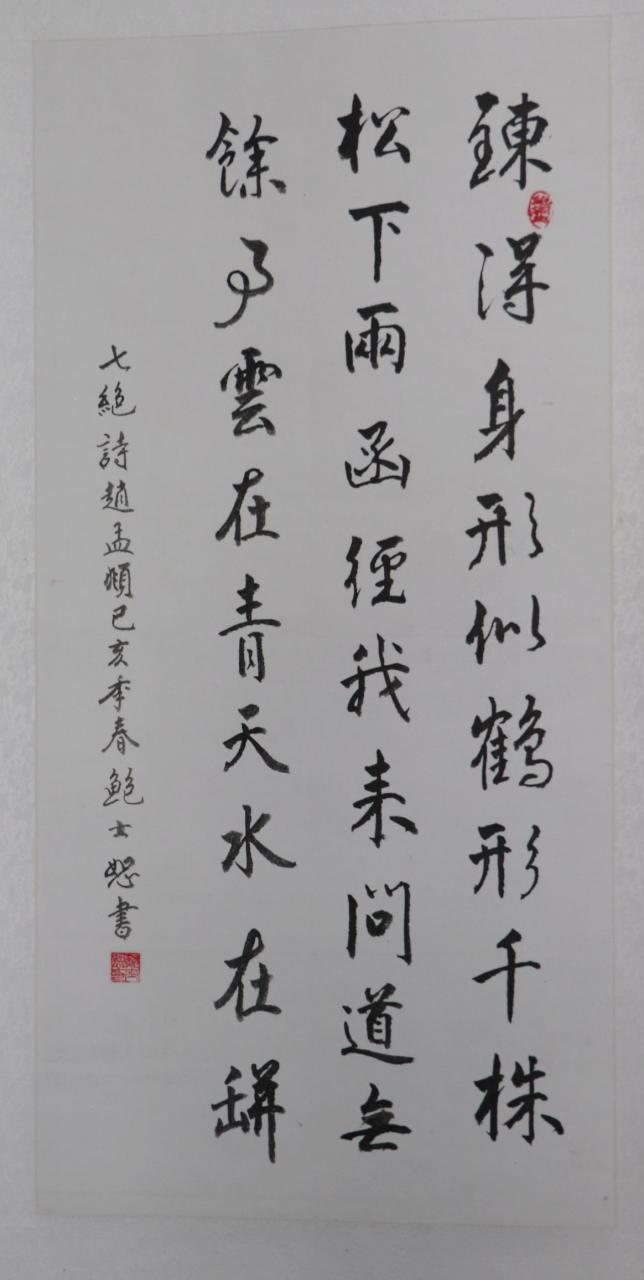 鍊得身形似鶴形千株
松下兩函經我来問道無
餘事雲在青天水在缾
七絶詩趙孟頫己亥季春鮑士恕書